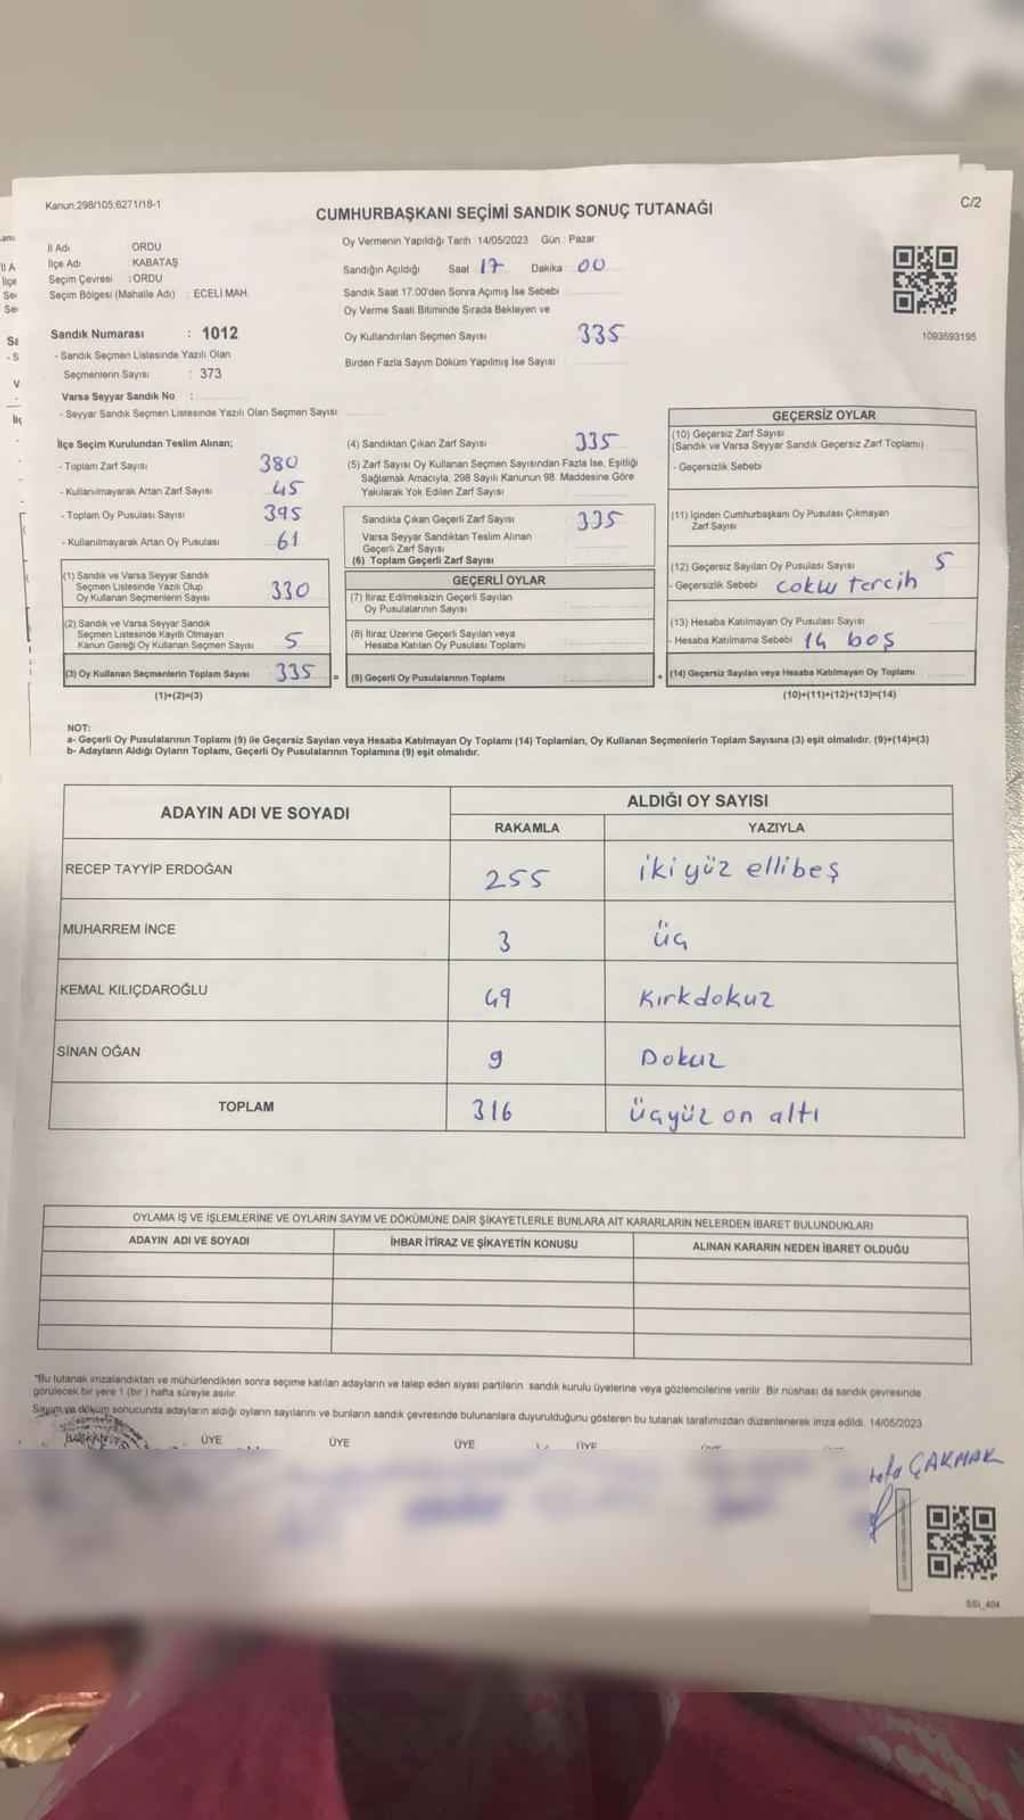 Kanun:298/105;6271/18-1
C/2
CUMHURBAŞKANI SEÇİMİ SANDIK SONUÇ TUTANAĞI
İl Adı ORDU
İlçe Adı KABATAŞ
Seçim Çevresi : ORDU
Seçim Bölgesi (Mahalle Adı) : ECELİ MAH.
Sandık Numarası : 1012
- Sandık Seçmen Listesinde Yazılı Olan
Seçmenlerin Sayısı : 373
Varsa Seyyar Sandık No :
- Seyyar Sandık Seçmen Listesinde Yazılı Olan Seçmen Sayısı
Oy Vermenin Yapıldığı Tarih: 14/05/2023 Gün : Pazar
Sandığın Açıldığı Saat 17 Dakika 00
Sandık Saat 17.00'den Sonra Açımış İse Sebebi
Oy Verme Saati Bitiminde Sırada Bekleyen ve
Oy Kullandırılan Seçmen Sayısı 335
Birden Fazla Sayım Döküm Yapılmış İse Sayısı
1093593195
İlçe Seçim Kurulundan Teslim Alınan;
- Toplam Zarf Sayısı 380
- Kullanılmayarak Artan Zarf Sayısı 45
- Toplam Oy Pusulası Sayısı 395
- Kullanılmayarak Artan Oy Pusulası 61
(1) Sandık ve Varsa Seyyar Sandık
Seçmen Listesinde Yazılı Olup
Oy Kullanan Seçmenlerin Sayısı 330
(2) Sandık ve Varsa Seyyar Sandık
Seçmen Listesinde Kayıtlı Olmayan
Kanun Gereği Oy Kullanan Seçmen Sayısı 5
(3) Oy Kullanan Seçmenlerin Toplam Sayısı 335
(1)+(2)=(3)
(4) Sandıktan Çıkan Zarf Sayısı 335
(5) Zarf Sayısı Oy Kullanan Seçmen Sayısından Fazla İse, Eşitliği
Sağlamak Amacıyla, 298 Sayılı Kanunun 98. Maddesine Göre
Yakılarak Yok Edilen Zarf Sayısı
Sandıkta Çıkan Geçerli Zarf Sayısı 335
Varsa Seyyar Sandıktan Teslim Alınan
Geçerli Zarf Sayısı
(6) Toplam Geçerli Zarf Sayısı
GEÇERLİ OYLAR
(7) İtiraz Edilmeksizin Geçerli Sayılan
Oy Pusulalarının Sayısı
(8) İtiraz Üzerine Geçerli Sayılan veya
Hesaba Katılan Oy Pusulası Toplamı
= (9) Geçerli Oy Pusulalarının Toplamı
GEÇERSİZ OYLAR
(10) Geçersiz Zarf Sayısı
(Sandık ve Varsa Seyyar Sandık Geçersiz Zarf Toplamı)
- Geçersizlik Sebebi
(11) İçinden Cumhurbaşkanı Oy Pusulası Çıkmayan
Zarf Sayısı
(12) Geçersiz Sayılan Oy Pusulası Sayısı 5
- Geçersizlik Sebebi coklu tercih
(13) Hesaba Katılmayan Oy Pusulası Sayısı
- Hesaba Katılmama Sebebi 14 boş
+ (14) Geçersiz Sayılan veya Hesaba Katılmayan Oy Toplamı
(10)+(11)+(12)+(13)=(14)
NOT:
a- Geçerli Oy Pusulalarının Toplamı (9) ile Geçersiz Sayılan veya Hesaba Katılmayan Oy Toplamı (14) Toplamları, Oy Kullanan Seçmenlerin Toplam Sayısına (3) eşit olmalıdır. (9)+(14)=(3)
b- Adayların Aldığı Oyların Toplamı, Geçerli Oy Pusulalarının Toplamına (9) eşit olmalıdır.
ADAYIN ADI VE SOYADI ALDIĞI OY SAYISI
RAKAMLA YAZIYLA
RECEP TAYYİP ERDOĞAN 255 iki yüz ellibeş
MUHARREM İNCE 3 üç
KEMAL KILIÇDAROĞLU 49 Kırkdokuz
SİNAN OĞAN 9 Dokuz
TOPLAM 316 üçyüz on altı
OYLAMA İŞ VE İŞLEMLERİNE VE OYLARIN SAYIM VE DÖKÜMÜNE DAİR ŞİKAYETLERLE BUNLARA AİT KARARLARIN NELERDEN İBARET BULUNDUKLARI
ADAYIN ADI VE SOYADI İHBAR İTİRAZ VE ŞİKAYETİN KONUSU ALINAN KARARIN NEDEN İBARET OLDUĞU
*Bu tutanak imzalandıktan ve mühürlendikten sonra seçime katılan adayların ve talep eden siyasi partilerin sandık kurulu üyelerine veya gözlemcilerine verilir. Bir nüshası da sandık çevresinde
görülecek bir yere 1 (bir) hafta süreyle asılır.
Sayım ve döküm sonucunda adayların aldığı oyların sayılarını ve bunların sandık çevresinde bulunanlara duyurulduğunu gösteren bu tutanak tarafımızdan düzenlenerek imza edildi. 14/05/2023
BAŞKAN ÜYE ÜYE ÜYE ÜYE
ÇAKMAK